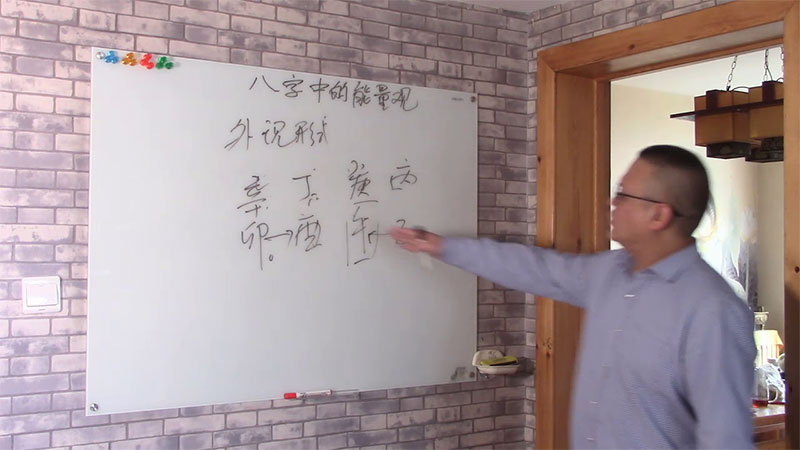 八字中的能量观
外现形式
辛 丁 庚 丙
卯→酉 午 子